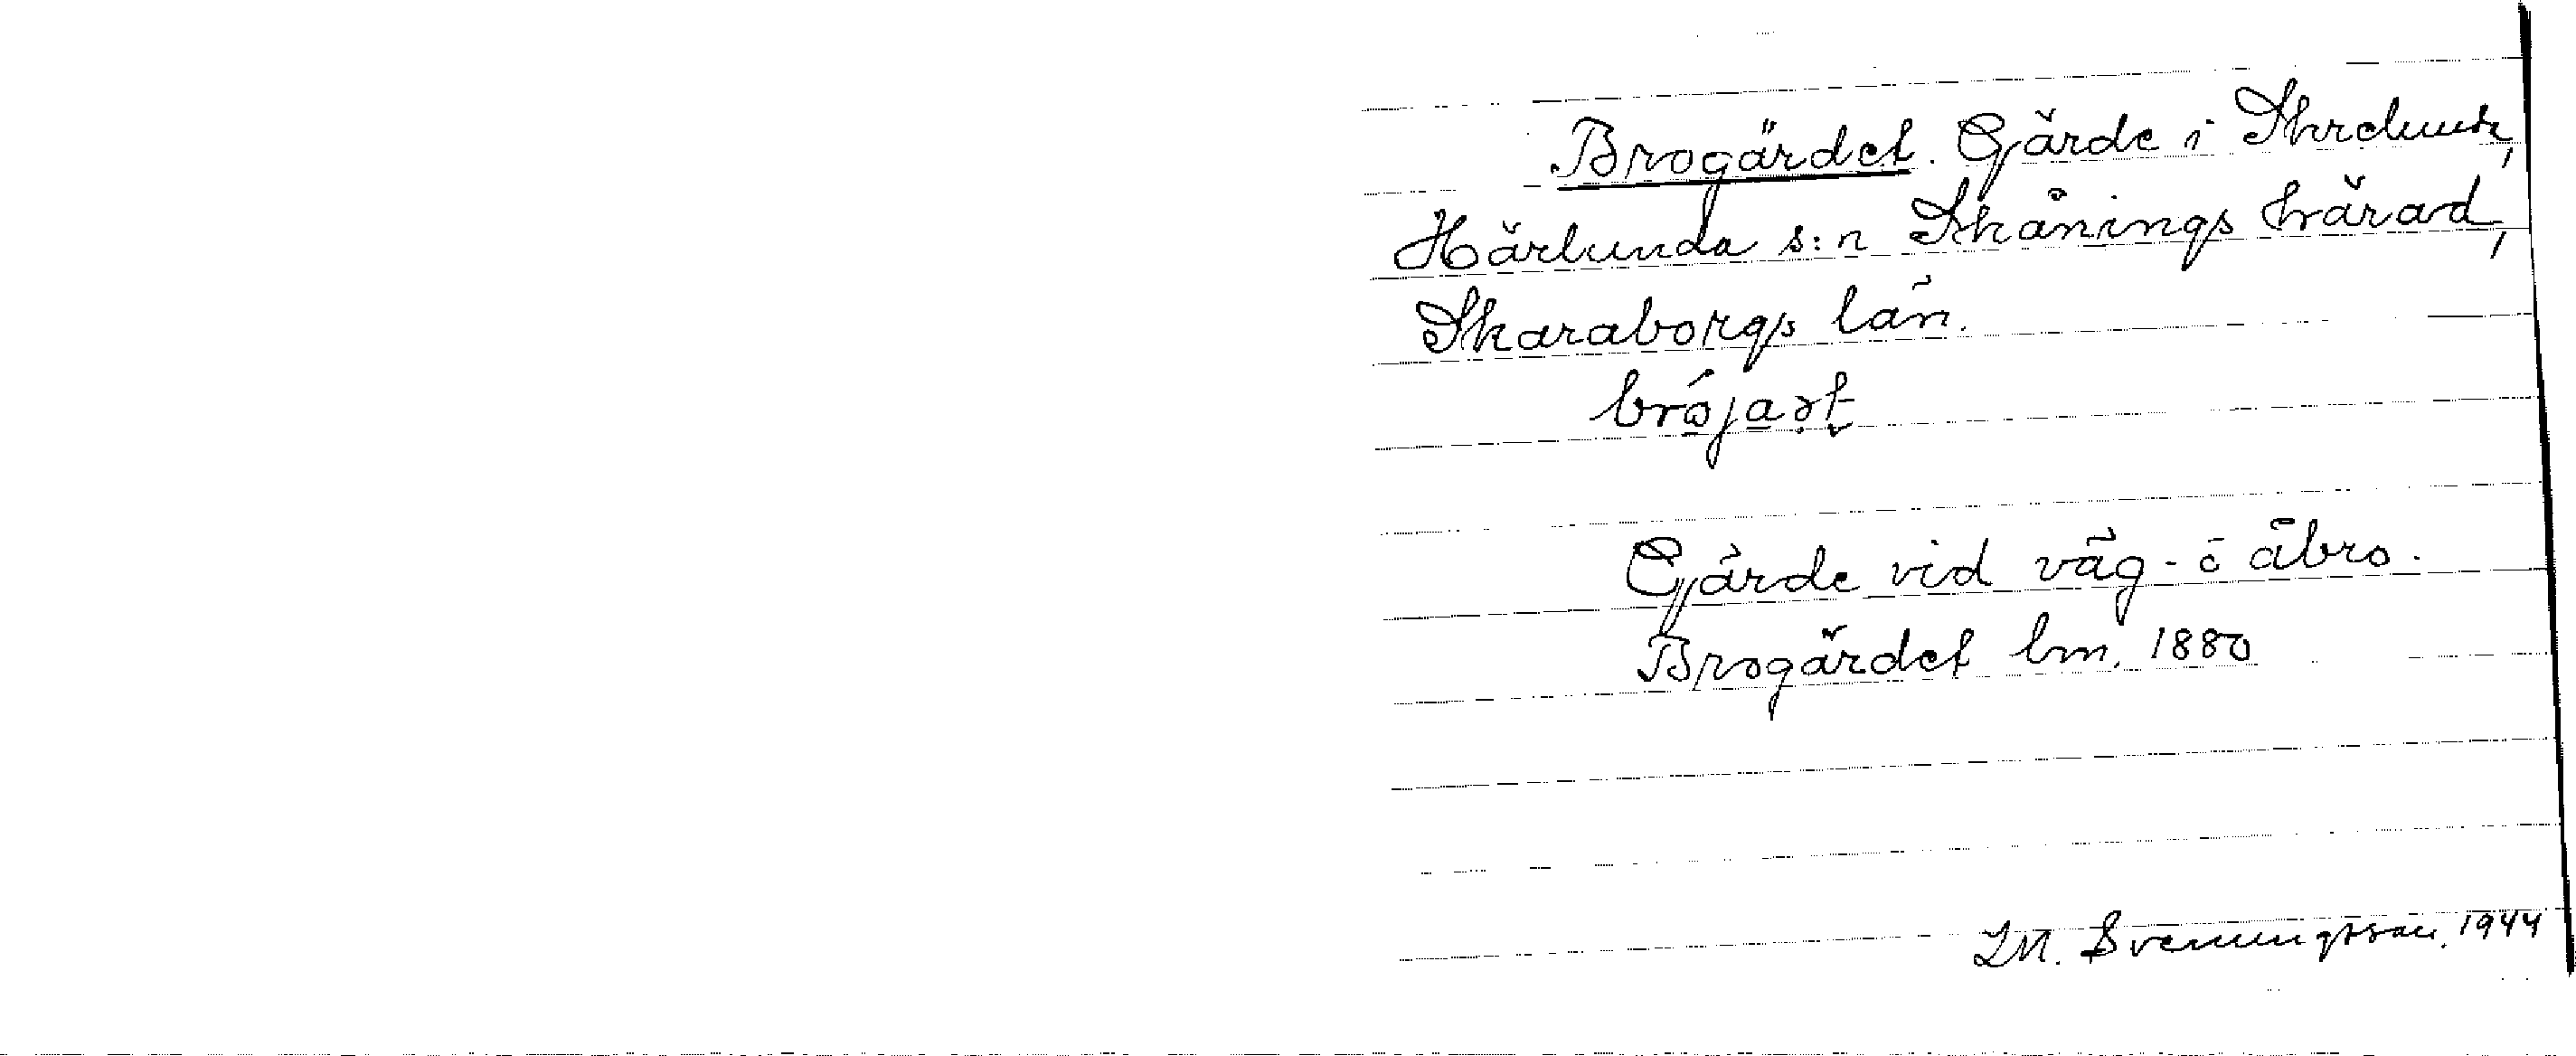 Brogärdet. Gärde i
Härlunda s:n Skånings härad,
Skaraborgs län.
Gärde vid väg- o åbro.
Brogärdet lm. 1880
LM. Svenungsson. 1944